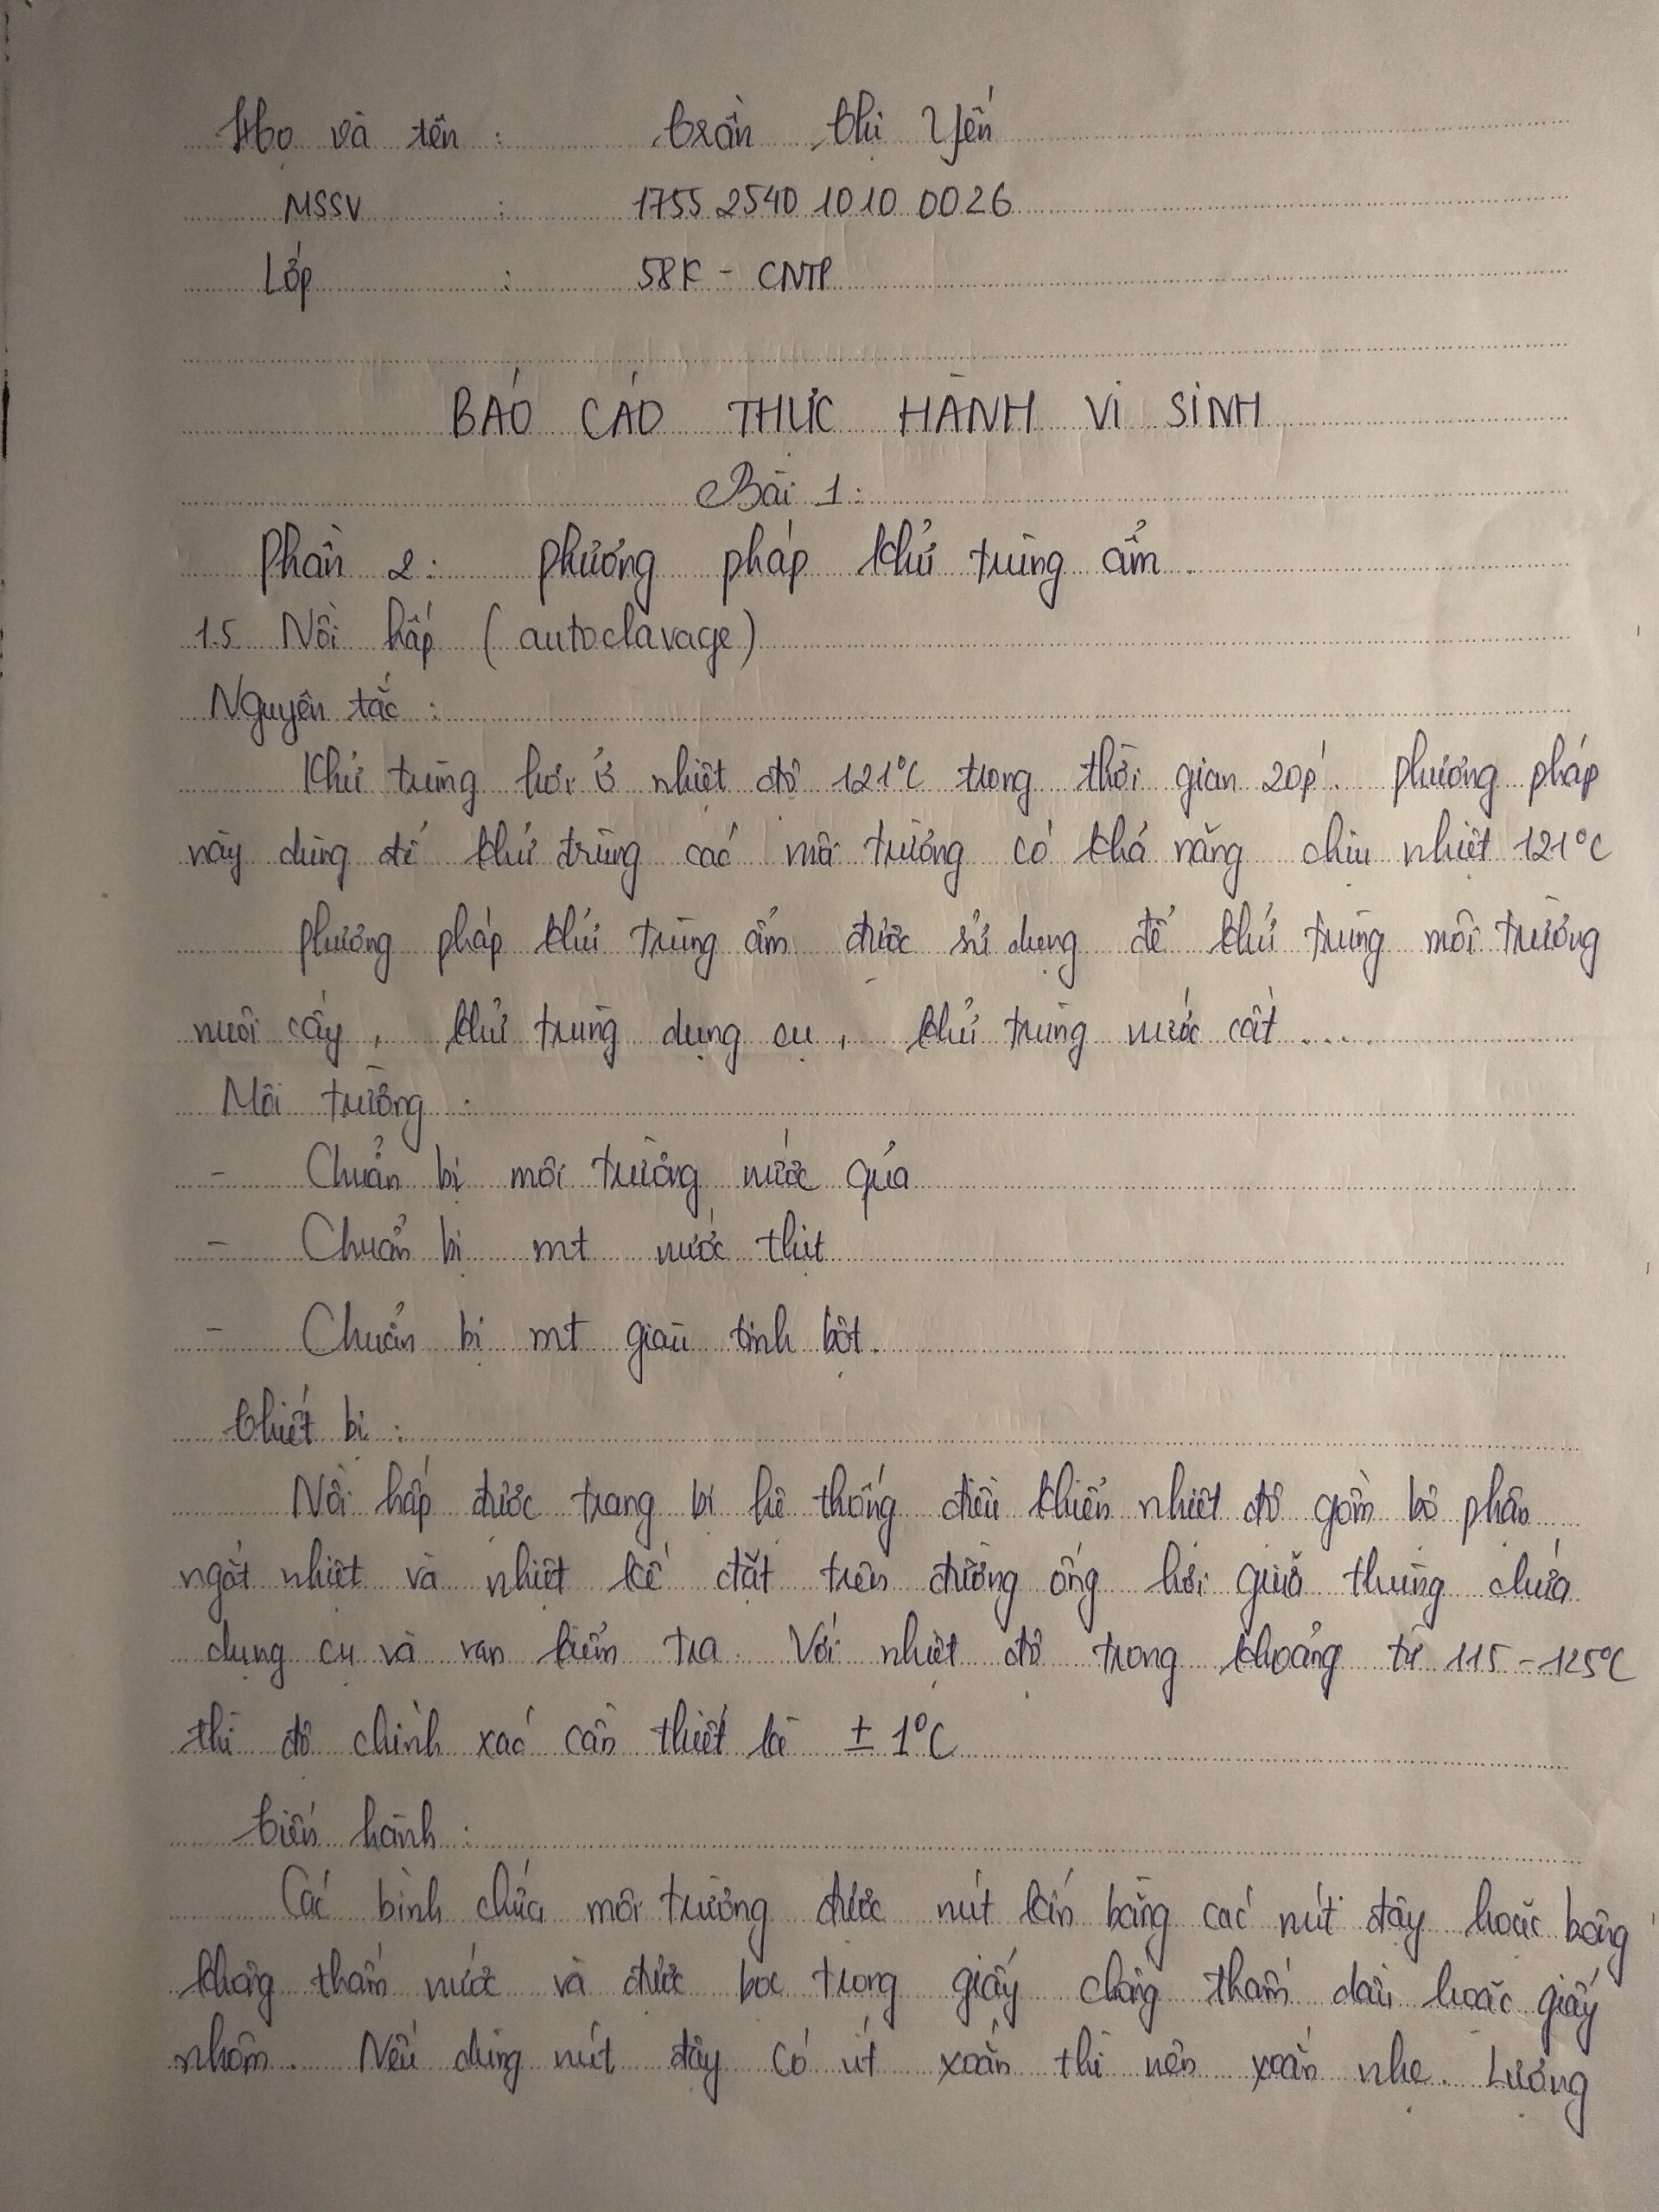 Họ và tên : Trần Thị Yến
MSSV : 1755 2540 1010 0026
Lớp : 58K - CNTP
BÁO CÁO THỰC HÀNH VI SINH
Bài 1:
Phần 2: Phương pháp khử trùng ẩm.
1.5 Nồi hấp (autoclavage)
Nguyên tắc :
Khử trùng hơi ở nhiệt độ 121°C trong thời gian 20p'. Phương pháp
này dùng để khử trùng các môi trường có khả năng chịu nhiệt 121°C
Phương pháp khử trùng ẩm được sử dụng để khử trùng môi trường
nuôi cấy, khử trùng dụng cụ, khử trùng nước cất ....
Môi trường :
- Chuẩn bị môi trường nước quả
- Chuẩn bị mt nước thịt
- Chuẩn bị mt giàu tinh bột.
Thiết bị :
Nồi hấp được trang bị hệ thống điều khiển nhiệt độ gồm bộ phận
ngắt nhiệt và nhiệt kế đặt trên đường ống hơi giữa thùng chứa
dụng cụ và van kiểm tra. Với nhiệt độ trong khoảng từ 115-125°C
thì độ chính xác cần thiết là ± 1°C
Tiến hành :
Các bình chứa môi trường được nút kín bằng các nút đậy hoặc bông
không thấm nước và được bọc trong giấy chống thấm dầu hoặc giấy
nhôm. Nếu dùng nút đậy có út xoắn thì nên xoắn nhẹ. Lượng